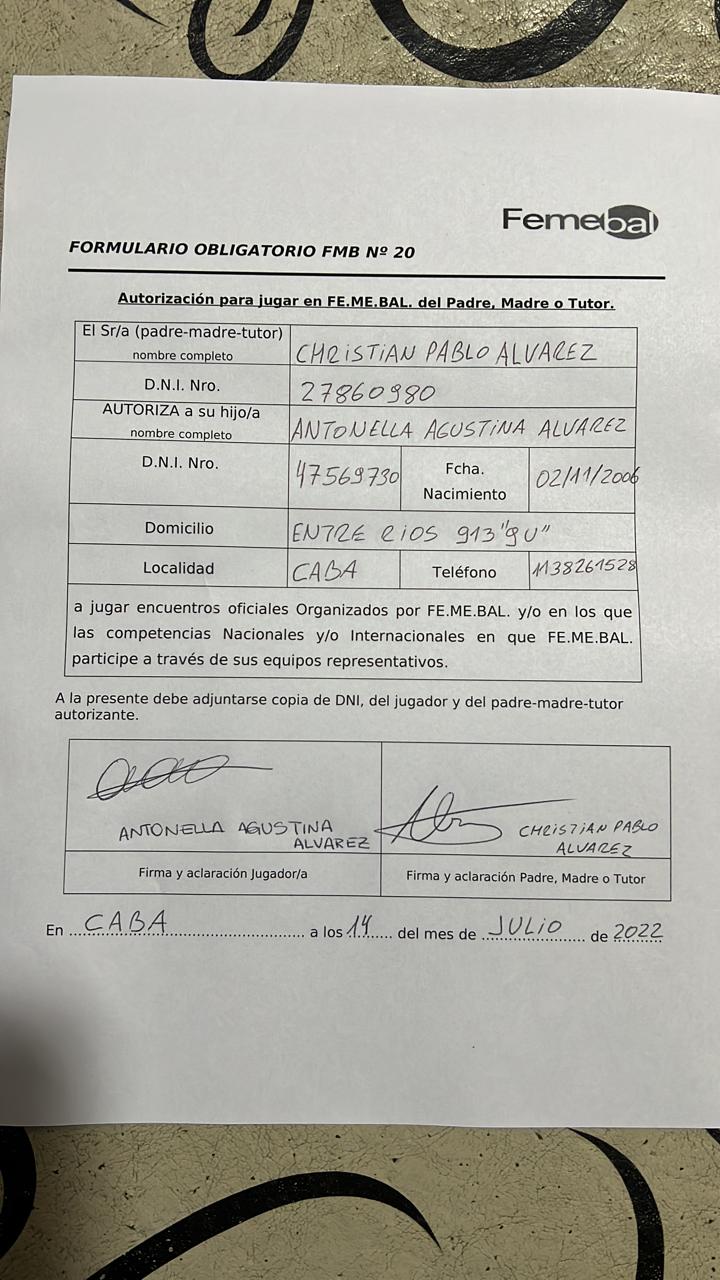 Femebal
FORMULARIO OBLIGATORIO FMB Nº 20
Autorización para jugar en FE.ME.BAL. del Padre, Madre o Tutor.
El Sr/a (padre-madre-tutor)
nombre completo
CHRISTIAN PABLO ALVAREZ
D.N.I. Nro.
27860980
AUTORIZA a su hijo/a
nombre completo
ANTONELLA AGUSTINA ALVAREZ
D.N.I. Nro.
47569730
Fcha.
Nacimiento
02/11/2006
Domicilio
ENTRE RIOS 913 "9U"
Localidad
CABA
Teléfono
1138261528
a jugar encuentros oficiales Organizados por FE.ME.BAL. y/o en los que
las competencias Nacionales y/o Internacionales en que FE.ME.BAL.
participe a través de sus equipos representativos.
A la presente debe adjuntarse copia de DNI, del jugador y del padre-madre-tutor
autorizante.
ANTONELLA AGUSTINA
ALVAREZ
CHRISTIAN PABLO
ALVAREZ
Firma y aclaración Jugador/a
Firma y aclaración Padre, Madre o Tutor
En CABA a los 14 del mes de JULIO de 2022